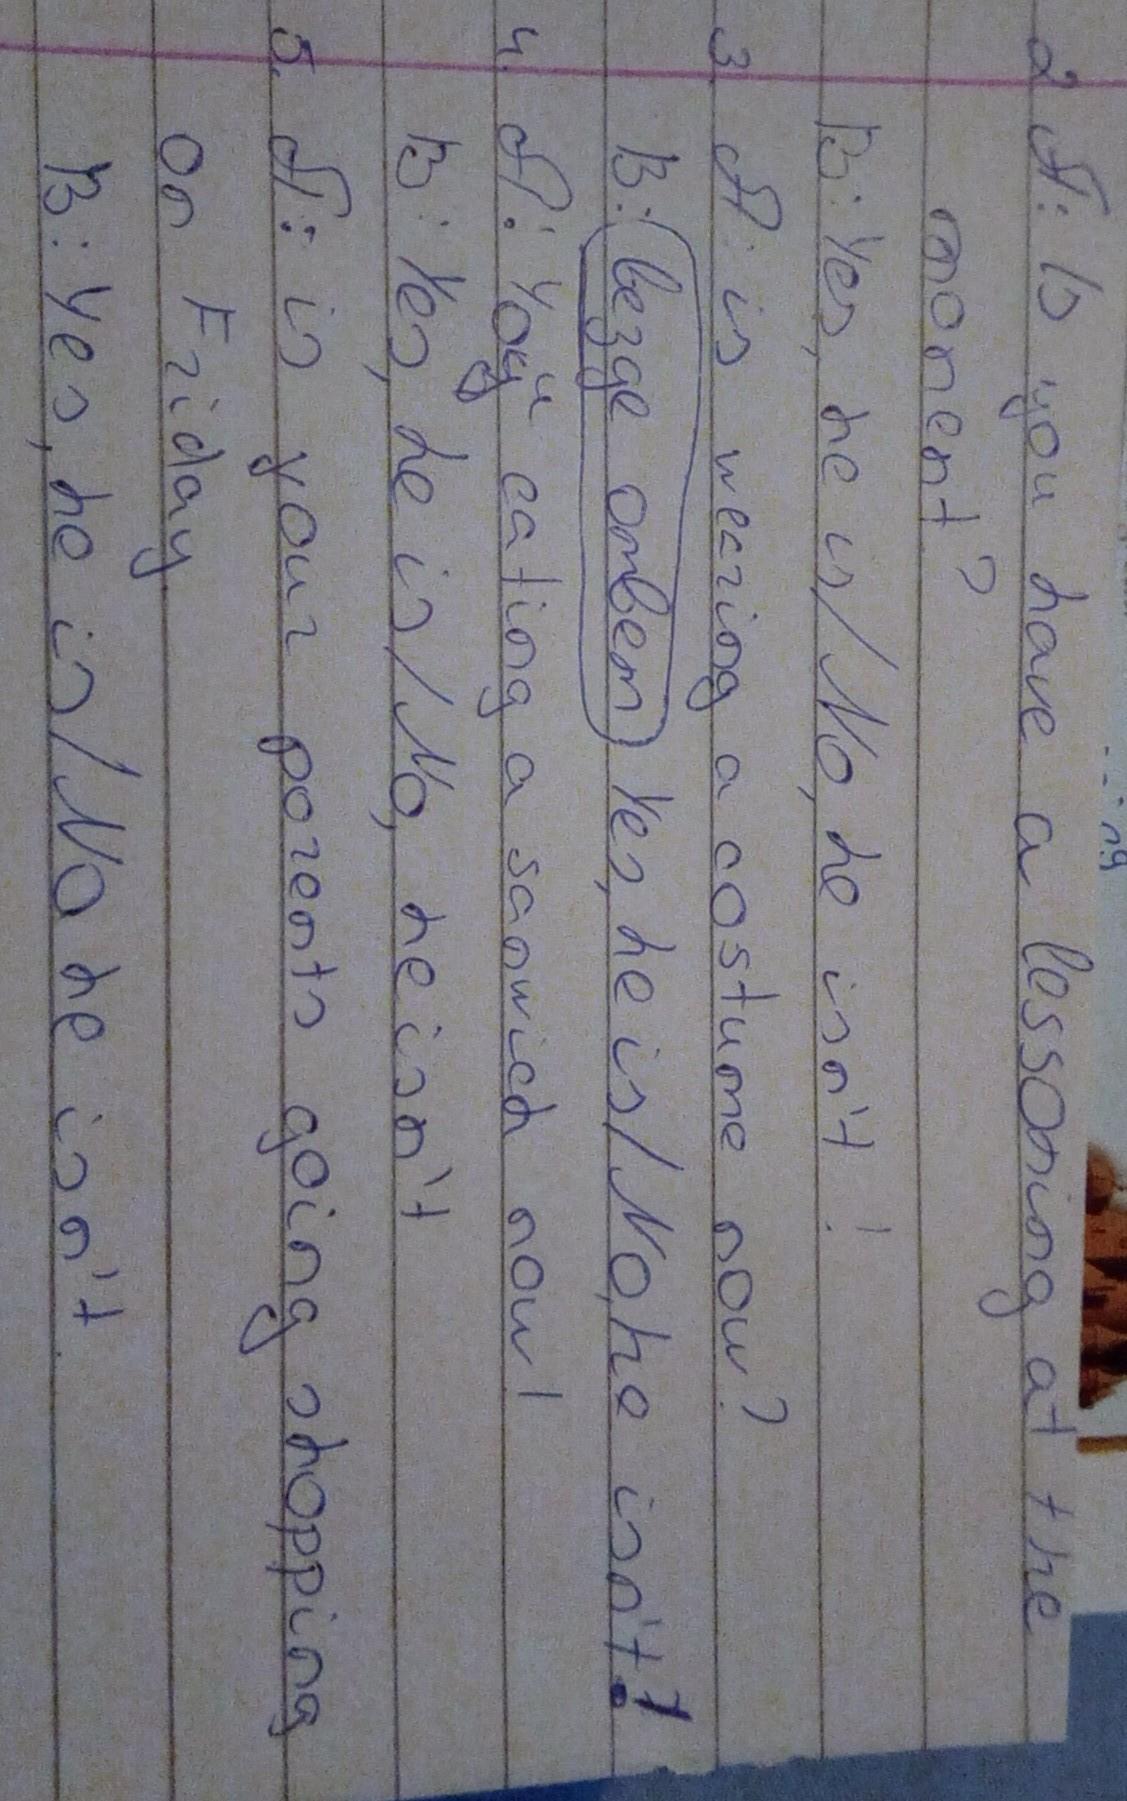 2 A: Is you have a lessoning at the
moment?
B: Yes, he is/No, he isn't!
3 A: is wering a costume now?
B: Yes, he is/No, he isn't!
4. A: You eating a sanwich now!
B: Yes, he is/No, he isn't
5. A: is your porents going shopping
on Friday
B: Yes, he is/No he isn't.